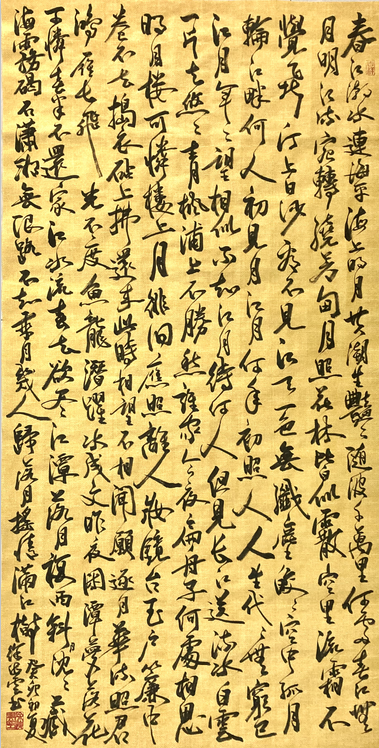 春江潮水連海平海上明月共潮生灩〻隨波千萬里何處春江無
月明江流宛轉繞芳甸月照花林皆似霰空里流霜不
覺飛汀上白沙看不見江天一色無纖塵皎〻空中孤月
輪江畔何人初見月江月何年初照人人生代代無窮已
江月年〻望相似不知江月待何人但見長江送流水白雲
一片去悠〻青楓浦上不勝愁誰家今夜扁舟子何處相思
明月樓可憐樓上月徘徊應照離人妝鏡台玉戶簾中
卷不去搗衣砧上拂還來此時相望不相聞願逐月華流照君
鴻雁長飛光不度魚龍潛躍水成文昨夜閑潭夢落花
可憐春半不還家江水流春去欲盡江潭落月復西斜月沈〻藏
海霧碣石瀟湘無限路不知乘月幾人歸落月搖情滿江樹癸卯初夏